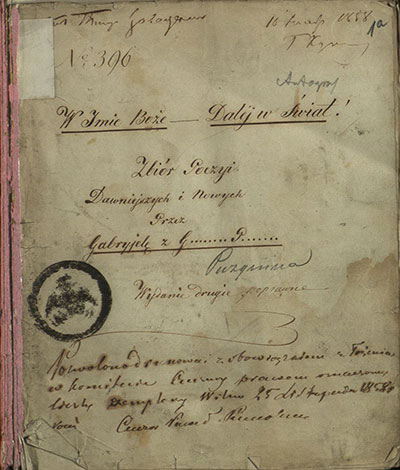 1858 1a
No 396
Autograf
W Imie Boże — Daléj w Świat!
Zbiór Poezyi
Dawniejszych i Nowych
Przez
Gabryjelę z G...... P......
Puzynina
Wydanie drugie poprawne
Pozwolono drukować z obowiązkiem złożenia
w Komitecie Cenzury prawem oznaczoną
liczbę exemplarzy Wilno 25 Listopada 1858
roku Cenzor Paweł Kukolnik